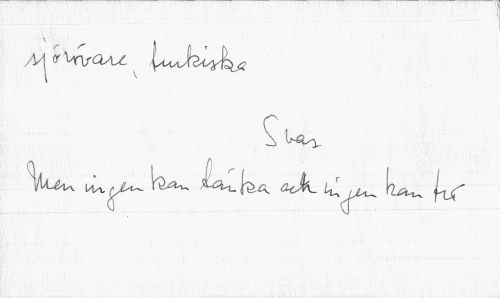 sjörövare, turkiska
Svar
Men ingen kan tänka och ingen kan tro